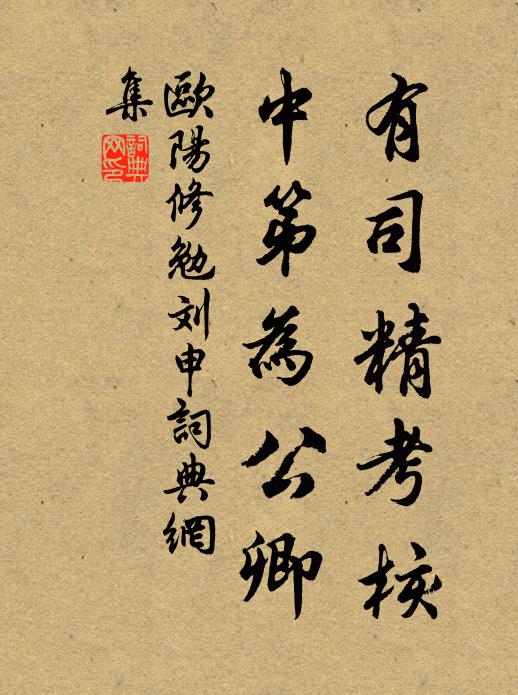 有司精考核
中第為公卿
歐陽修勉刘申詞典網
集
詞典网印